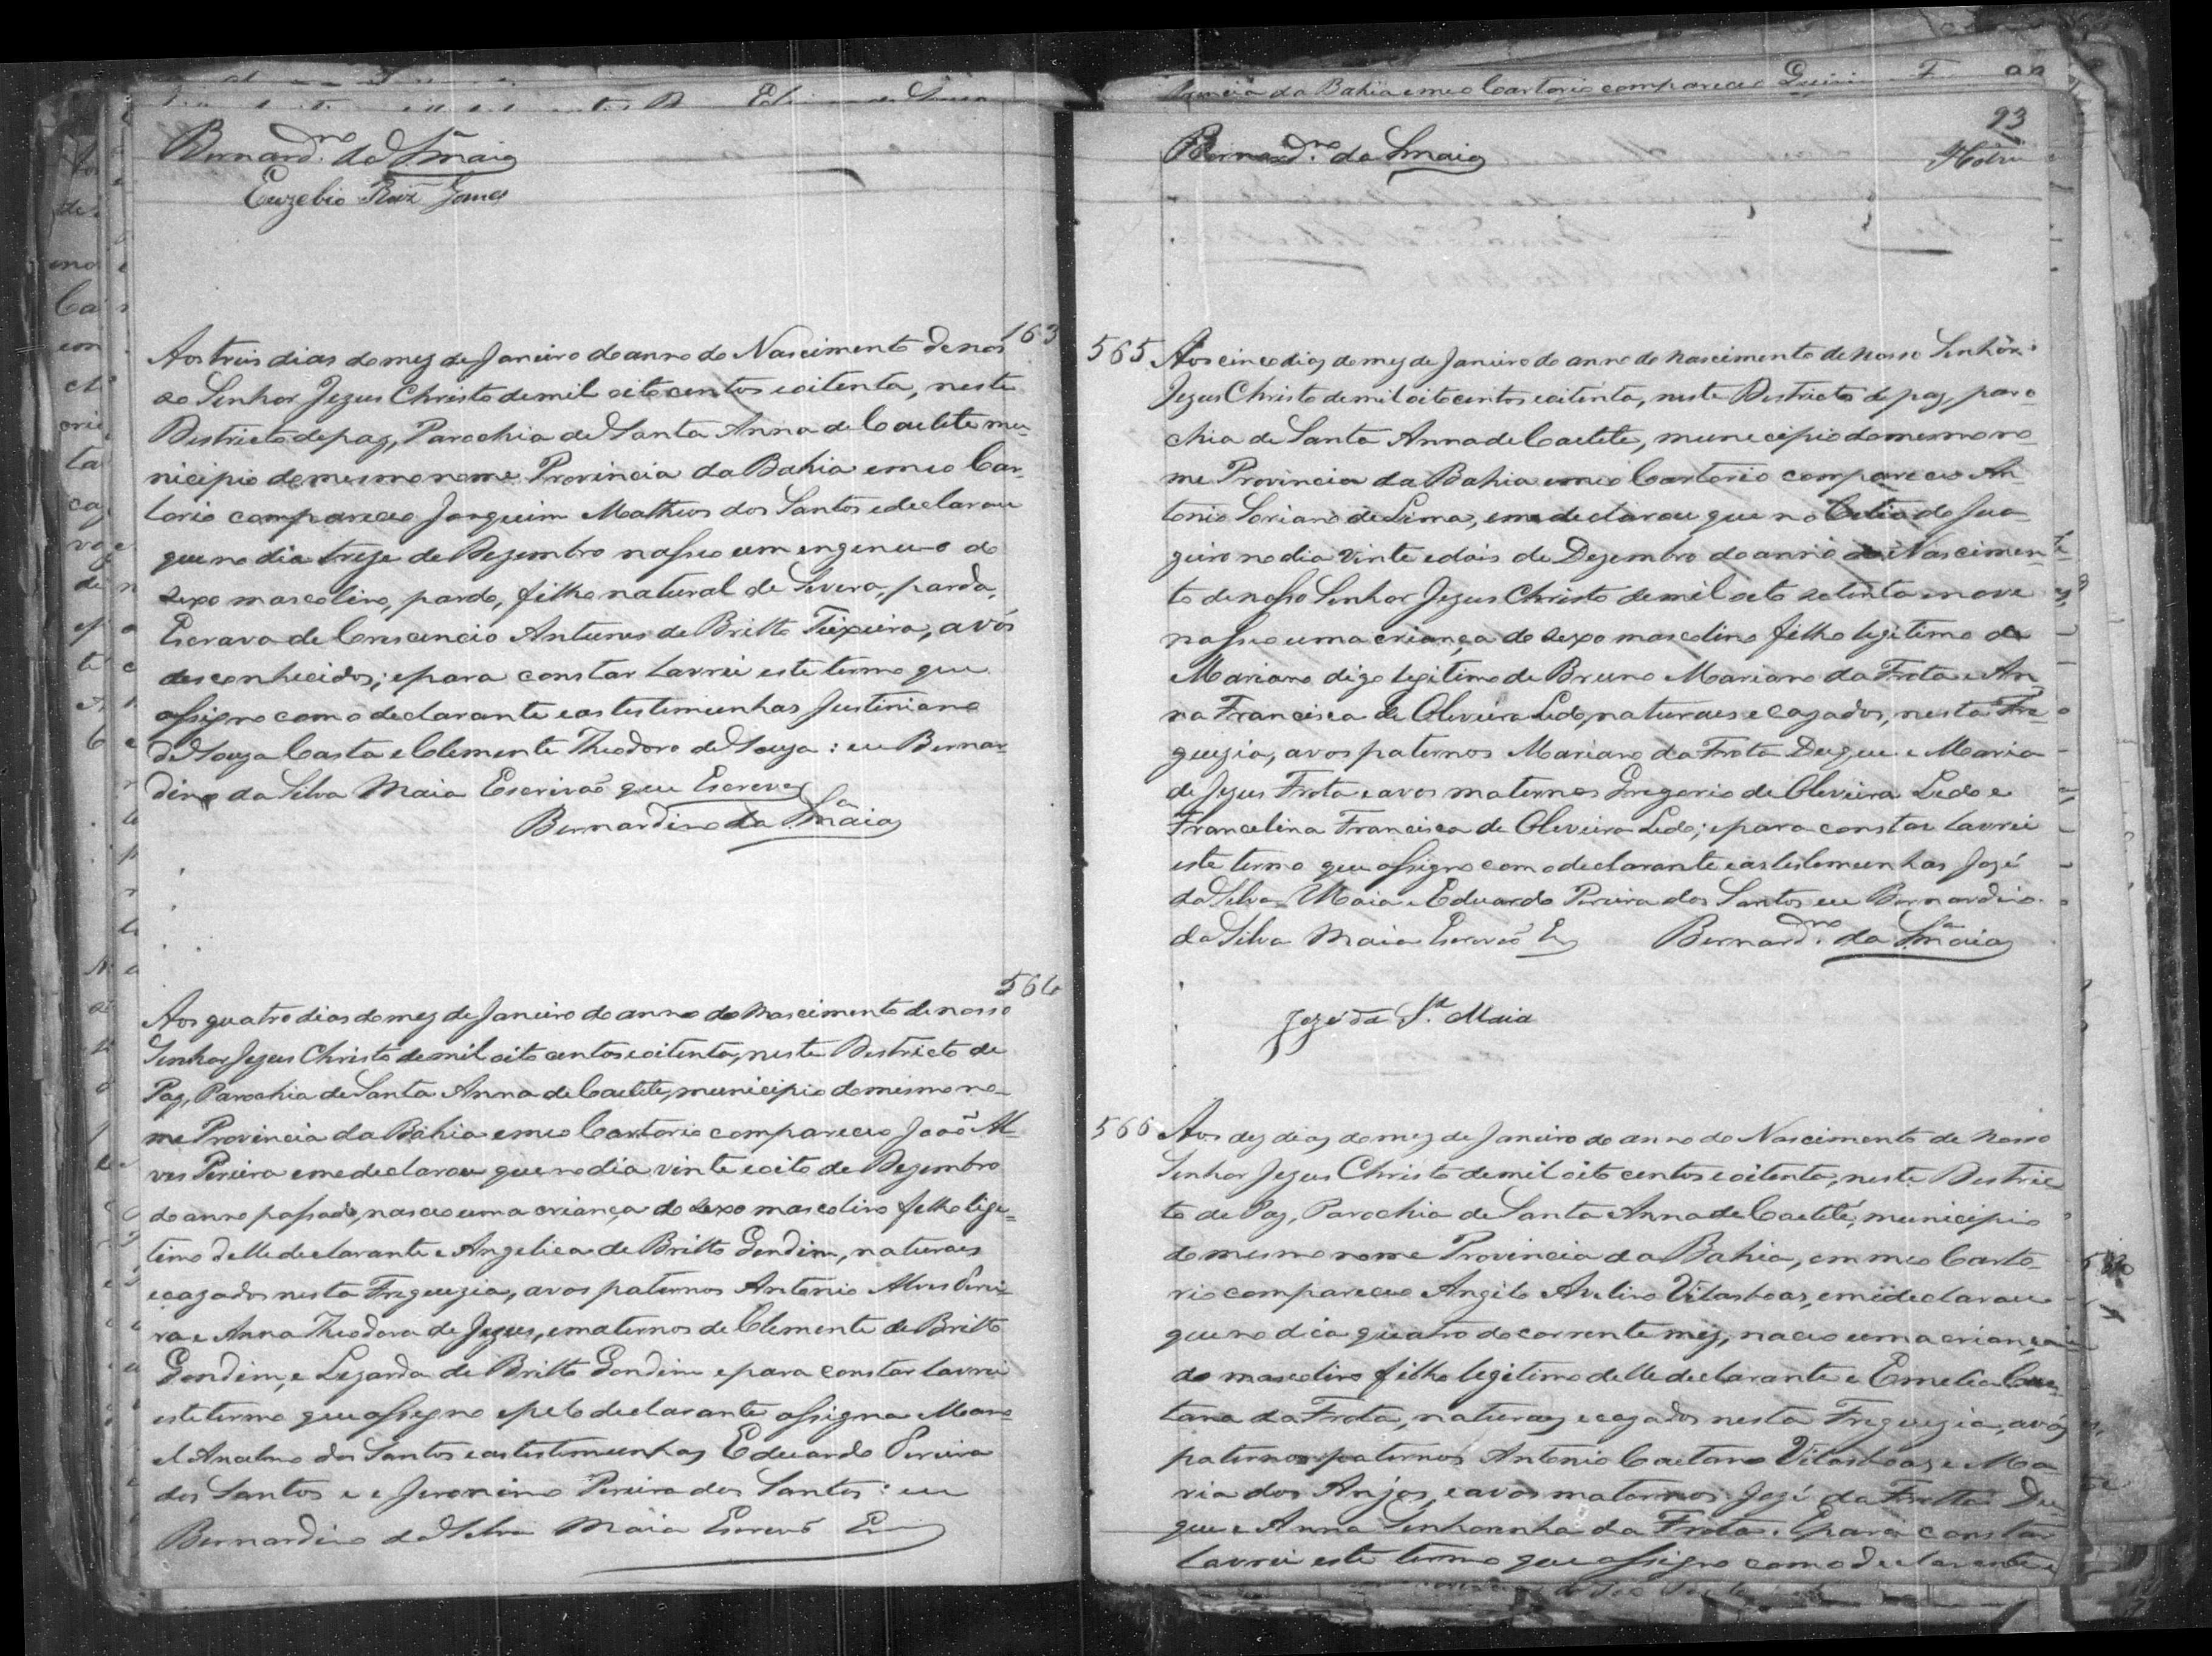 Bernard.no da S.a Maia
Euzebio Roiz Gomes
163
Aos treis dias do mez de Janeiro do anno do Nascimento de nos
so Senhor Jezus Christo de mil oito centos e oitenta, neste
Destricto de paz, Parochia de Santa Anna de Caetete mu-
nicipio do mesmo nome Provincia da Bahia em meo Car-
torio compareceo Joaquim Matheos dos Santos e declarou
que no dia treze de Dezembro nasseo um engenuo do
sexo mascolino, pardo, filho natural de Severa, parda,
Escrava de Crescencio Antunes de Britto Teixeira, avós
desconhecidos; e para constar lavrei este termo que
assigno com o declarante e as testemunhas Justiniano
de Souza Casta e Clemente Theodoro de Souza: eu Bernar-
dino da Silva Maia Escrivaõ que Escrevy
Bernardino da S.a Maia
564
Aos quatro dias do mez de Janeiro do anno do Nascimento de nosso
Senhor Jezus Christo de mil oito centos e oitenta, neste Destricto de
Paz, Parochia de Santa Anna de Caetete, municipio do mesmo no-
me Provincia da Bahia em meo Cartorio compareceo João Al-
ves Pereira e me declarou que no dia vinte e oito de Dezembro
do anno passado, nasceo uma criança do sexo mascolino filho lige-
timo delle declarante e Angelica de Britto Gondim, naturaes
e cazados nesta Freguezia, avos paternos Antonio Alves Perei-
ra e Anna Theodora de Jezus, e maternos de Clemente de Britto
Gondim, e Lizarda de Britto Gondim e para constar lavrei
este termo que assigno e pelo declarante assigna Mano
el Ancelmo dos Santos e as testemunhas Eduardo Pereira
dos Santos e e Jeronimo Pereira dos Santos: eu
Bernardino da Silva Maia Escrevaõ E
Provincia da Bahia em meo Cartorio compareceo
93
Bernard.no da S.a Maia
565 Aos cinco dias do mez de Janeiro do anno do nascimento de Nosso Senhor
Jezus Christo de mil oito centos e oitenta, neste Destricto de paz, paro-
chia de Santa Anna de Caetete, municipio do mesmo no-
me Provincia da Bahia em meo Cartorio compareceo An-
tonio Soriano de Lima, e me declarou que no Citio do Jua-
zeiro no dia vinte e dois de Dezembro do anno do Nascimen-
to de nosso Senhor Jezus Christo de mil oito setenta e nove
nasseo uma criança do sexo mascolino filho legitimo de
Mariano digo legitimo de Bruno Mariano da Frota e An
na Francisca de Oliveira Ledo, naturaes e cazados, nesta Fre-
guezia, avos paternos Mariano da Frota Duque e Maria
de Jezus Frota e avos maternos Gregorio de Oliveira Ledo e
Francelina Francisca de Oliveira Ledo; e para constar lavrei
este termo que assigno com o declarante e as testemunhas José
da Silva Maia e Eduardo Pereira dos Santos eu Bernardino
da Silva Maia Escrevaõ E Bernard.no da S.a Maia
Joze da S.a Maia
566 Aos dez dias do mez de Janeiro do anno do Nascimento de Nosso
Senhor Jezus Christo de mil oito centos e oitenta, neste Destric
to de Paz, Parochia de Santa Anna de Caetité, municipio
do mesmo nome Provincia da Bahia, em meo Carto-
rio compareceo Angelo Avelino Vilasboas, e me declarou
que no dia quatro do corrente mez, naceo uma criança
do mascolino filho legitimo delle declarante e Emelia Cae
tana da Frota, naturaes e cazados nesta Freguezia, avós
paternos paternos Antonio Caetano Vilasboas e Ma
ria dos Anjos, e avos maternos José da Frotta Du
que e Anna Senhorinha da Frota. E para constar
lavrei este termo que assigno com o declarante e